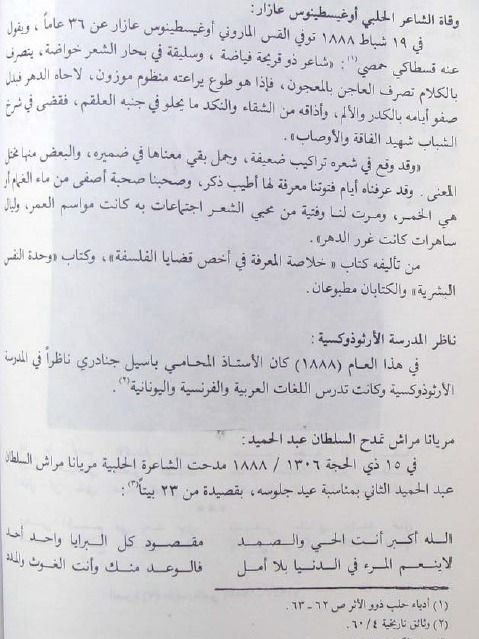 وفاة الشاعر الحلبي أوغيسطينوس عازار:
في ١٩ شباط ١٨٨٨ توفي القس الماروني أوغيسطينوس عازار عن ٣٦ عاماً، ويقول
عنه قسطاكي حمصي(١): «شاعر ذو قريحة فياضة، وسليقة في بحار الشعر خواضة، يتصرف
بالكلام تصرف العاجن بالمعجون، فإذا هو طوع يراعته منظوم موزون، لاحاه الدهر فبدل
صفو أيامه بالكدر والألم، وأذاقه من الشقاء والنكد ما يحلو في جنبه العلقم، فقضى في شرخ
الشباب شهيد الفاقة والأوصاب».
«وقد وقع في شعره تراكيب ضعيفة، وجمل بقي معناها في ضميره، والبعض منها مختل
المعنى. وقد عرفناه أيام فتوتنا معرفة لها أطيب ذكر، وصحبنا صحبة أصفى من ماء الغمام أو
هي الخمر، ومرت لنا وفتية من محبي الشعر اجتماعات به كانت مواسم العمر، وليال
ساهرات كانت غرر الدهر».
من تأليفه كتاب «خلاصة المعرفة في أخص قضايا الفلسفة»، وكتاب «وحدة النفس
البشرية» والكتابان مطبوعان.
ناظر المدرسة الأرثوذوكسية:
في هذا العام (١٨٨٨) كان الأستاذ المحامي باسيل جنادري ناظراً في المدرسة
الأرثوذوكسية وكانت تدرس اللغات العربية والفرنسية واليونانية(٢).
مريانا مراش تمدح السلطان عبد الحميد:
في ١٥ ذي الحجة ١٣٠٦ / ١٨٨٨ مدحت الشاعرة الحلبية مريانا مراش السلطان
عبد الحميد الثاني بمناسبة عيد جلوسه، بقصيدة من ٢٣ بيتاً(٣):
الله أكبر أنت الحي والصمد مقصود كل البرايا واحد أحد
لاينعم المرء في الدنيا بلا أمل فالوعد منك وأنت الغوث والمدد
(١) أدباء حلب ذوو الأثر ص ٦٢ - ٦٣.
(٢) وثائق تاريخية ٤/ ٦٠.